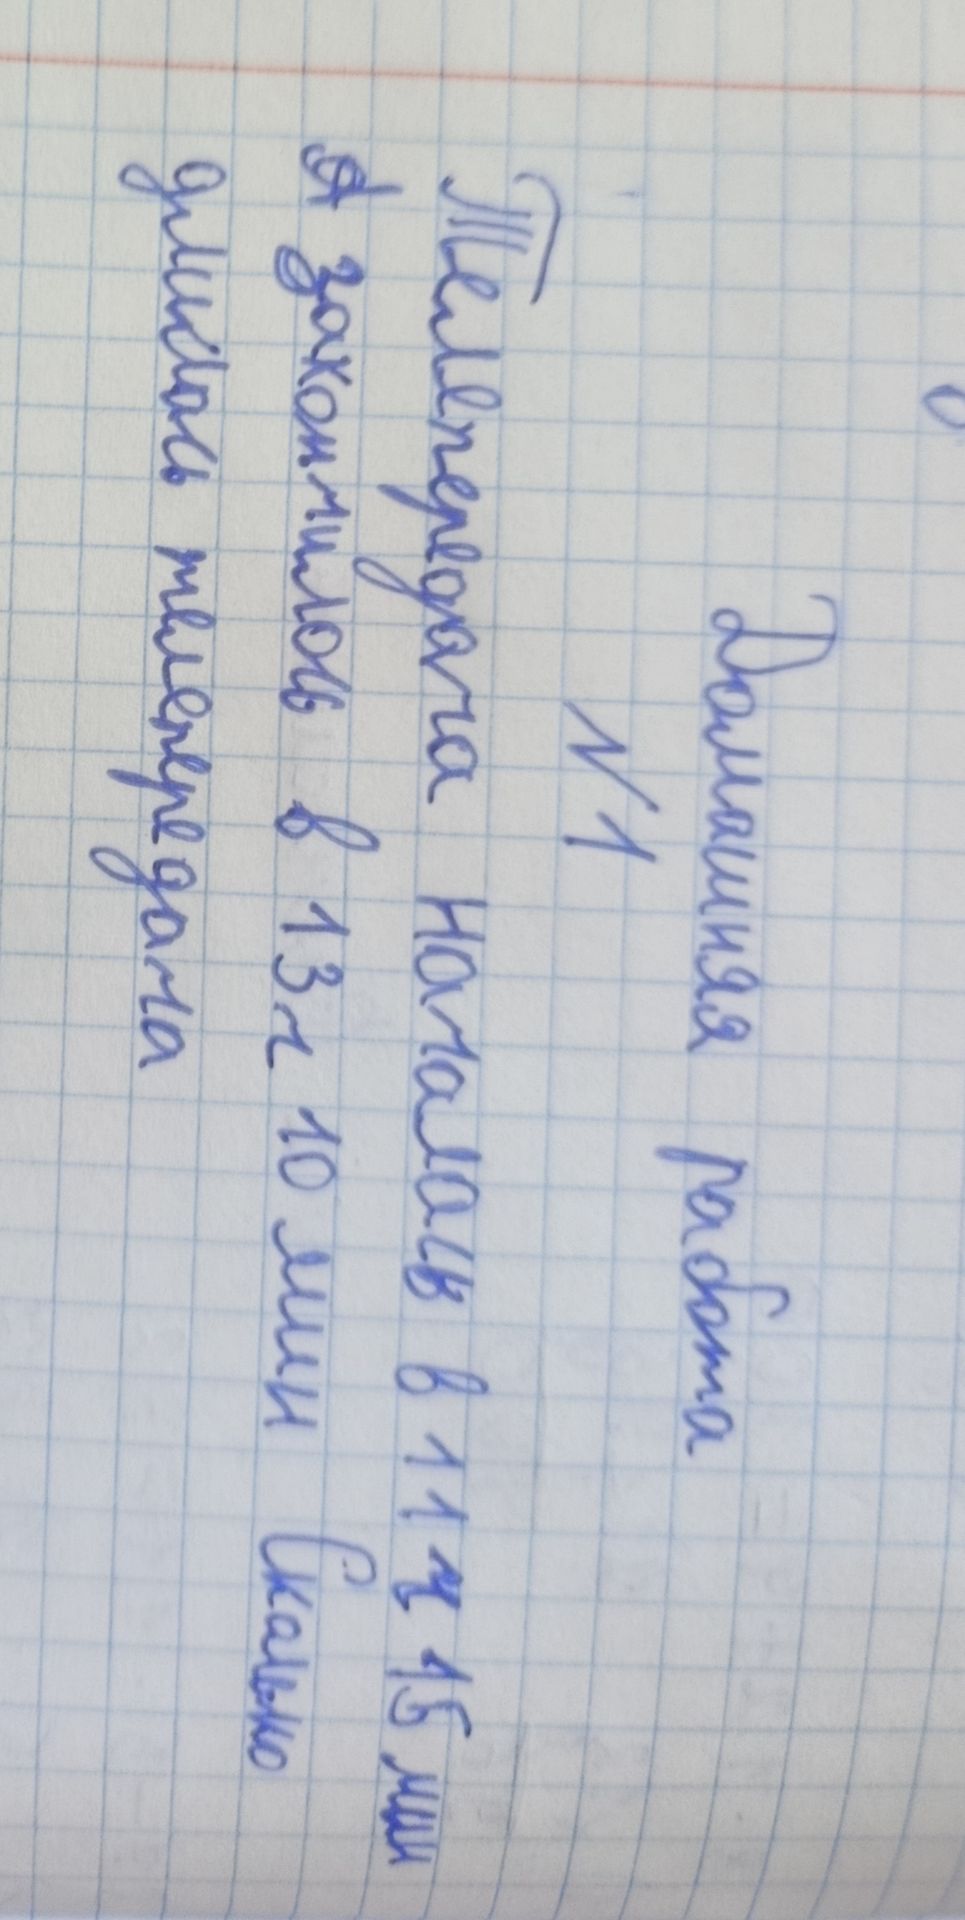 Домашняя работа
N1
Телепередача началась в 11ч 15 мин
А закончилось в 13ч 10 мин Скалько
длилась телепередача